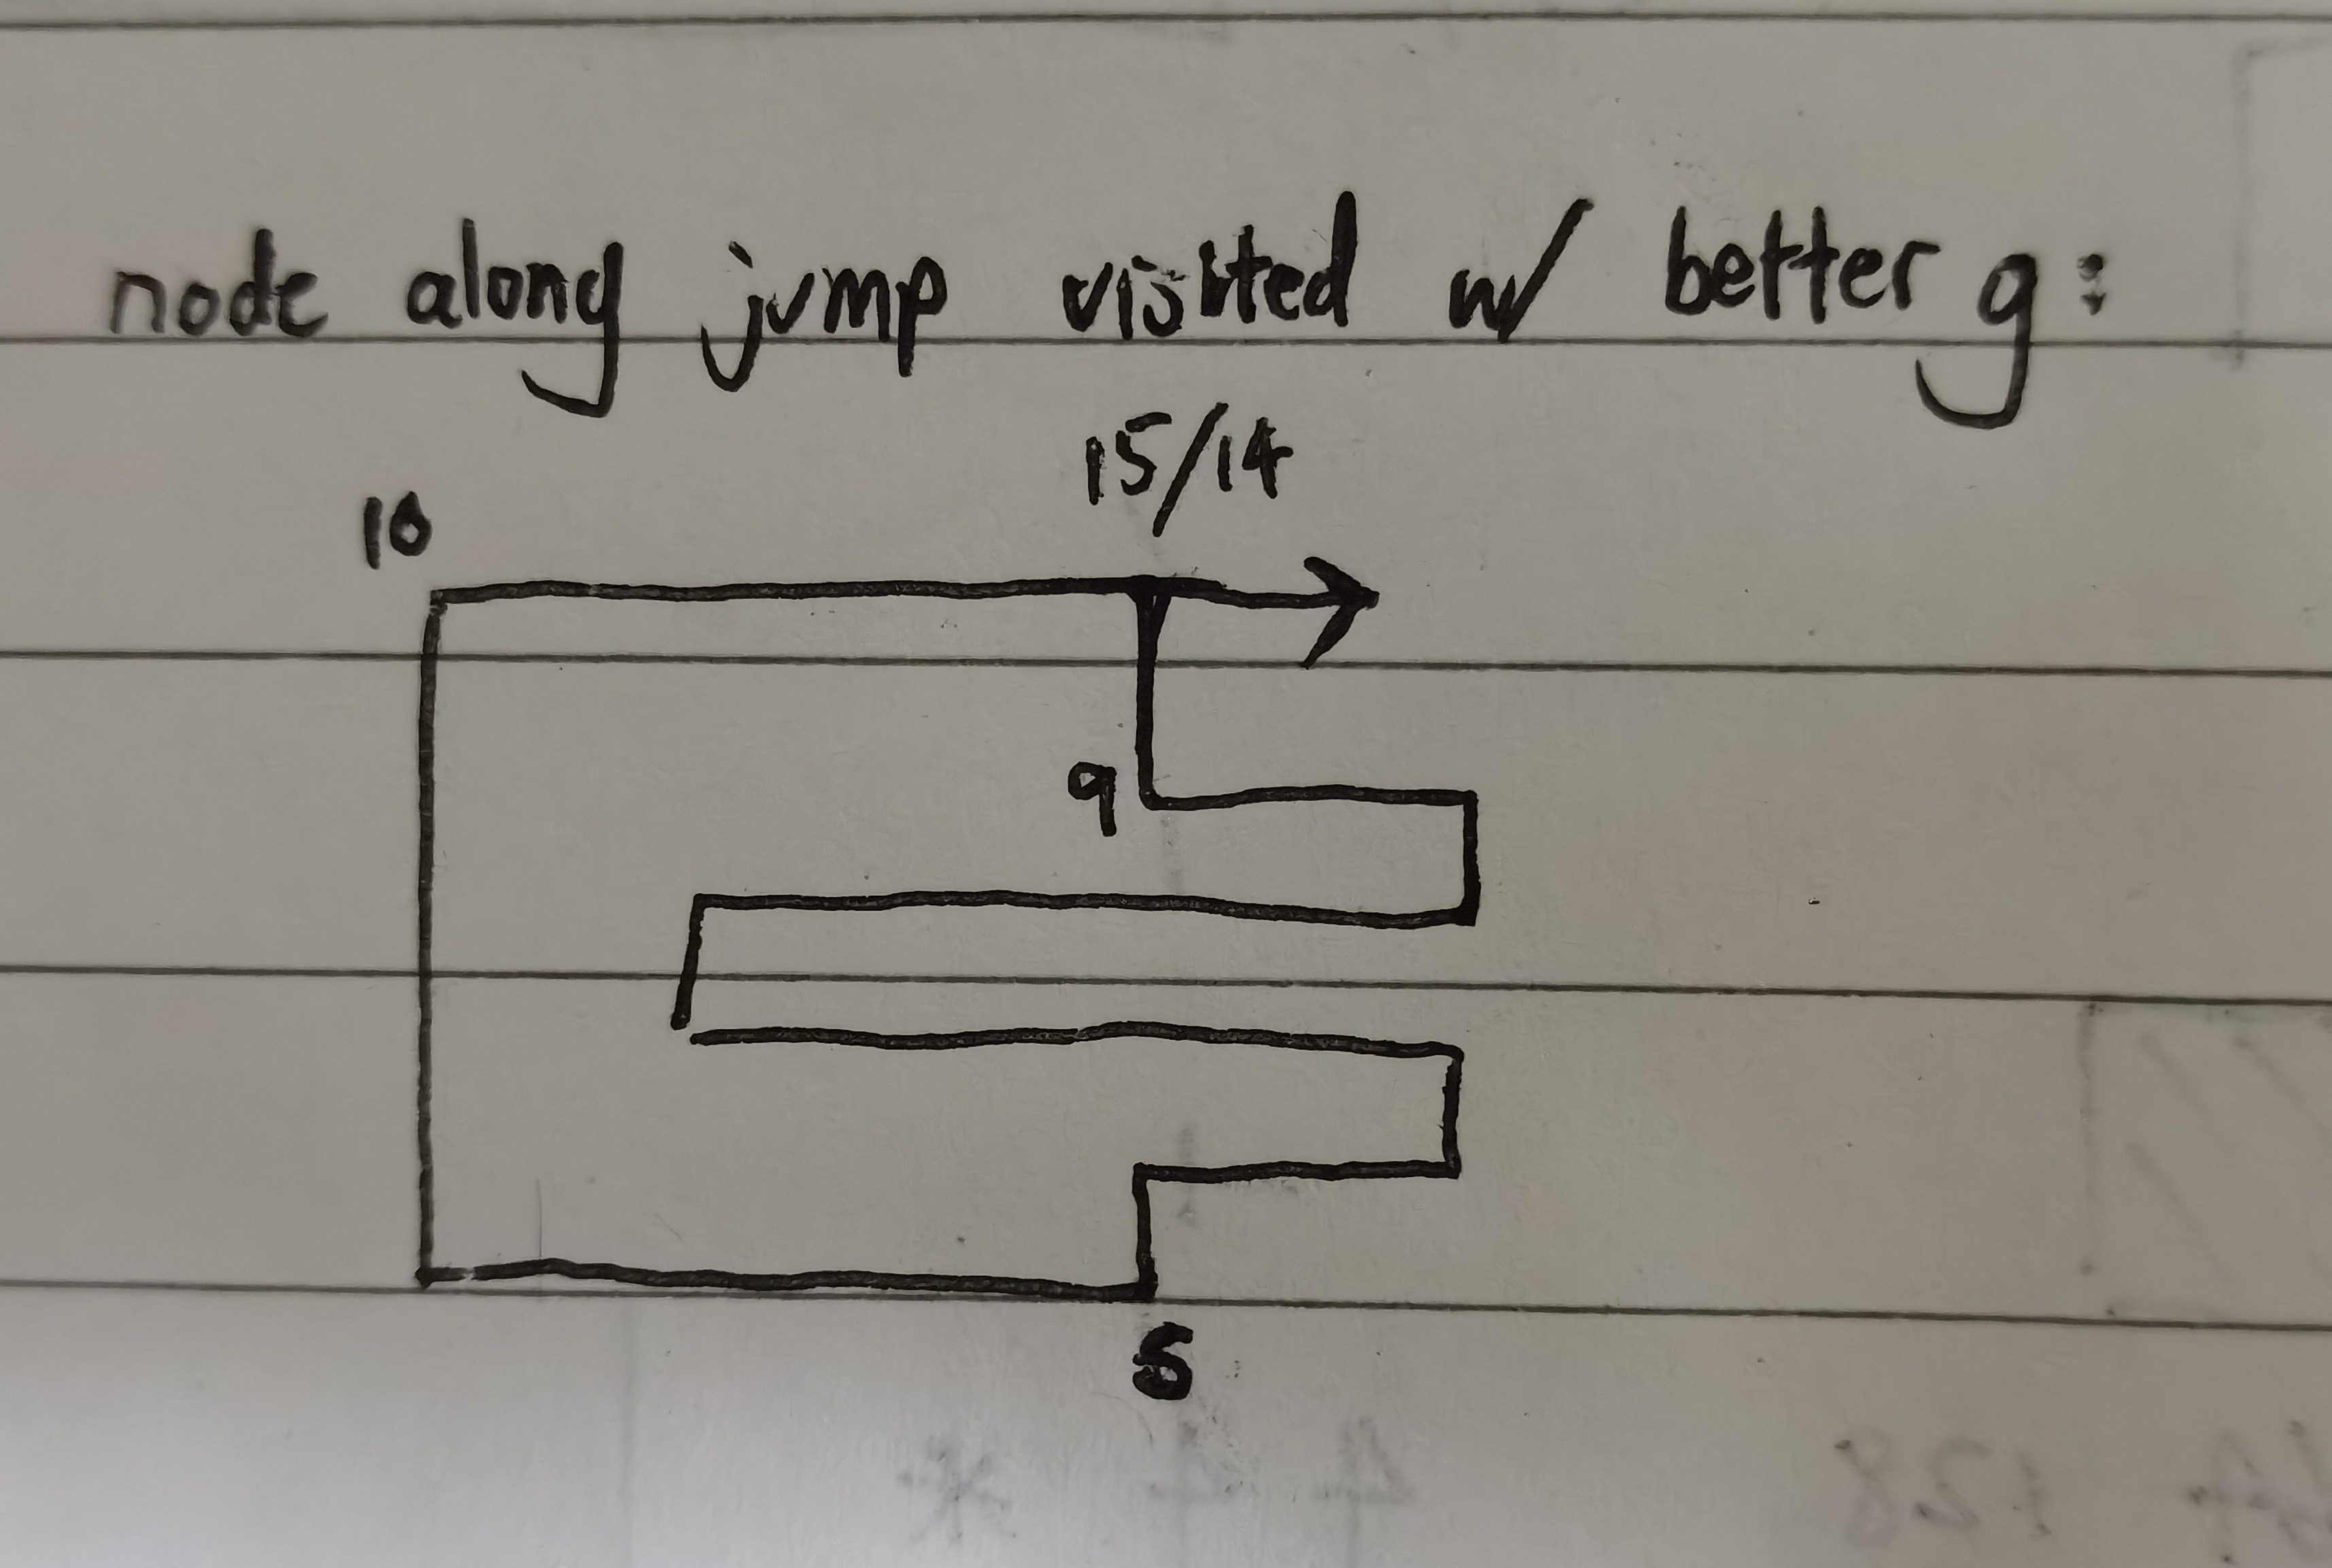 node along jump visited w/ better g:
15/14
10
9
S